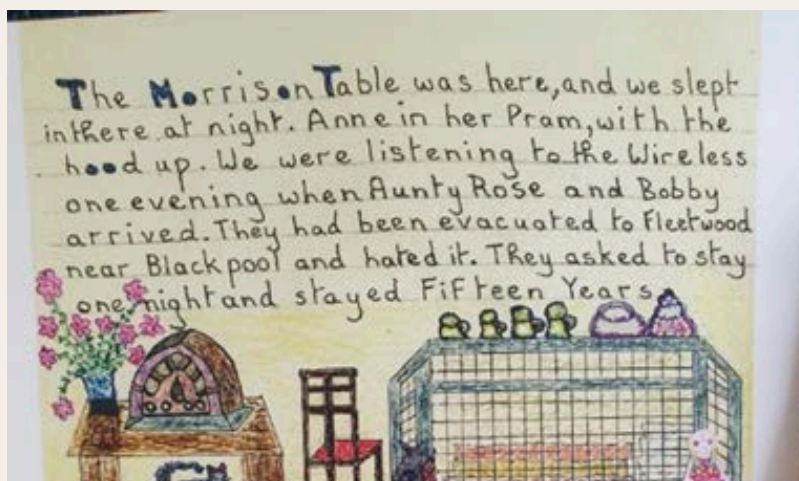 The Morrison Table was here, and we slept
in there at night. Anne in her Pram, with the
hood up. We were listening to the Wireless
one evening when Aunty Rose and Bobby
arrived. They had been evacuated to Fleetwood
near Blackpool and hated it. They asked to stay
one night and stayed Fifteen Years.